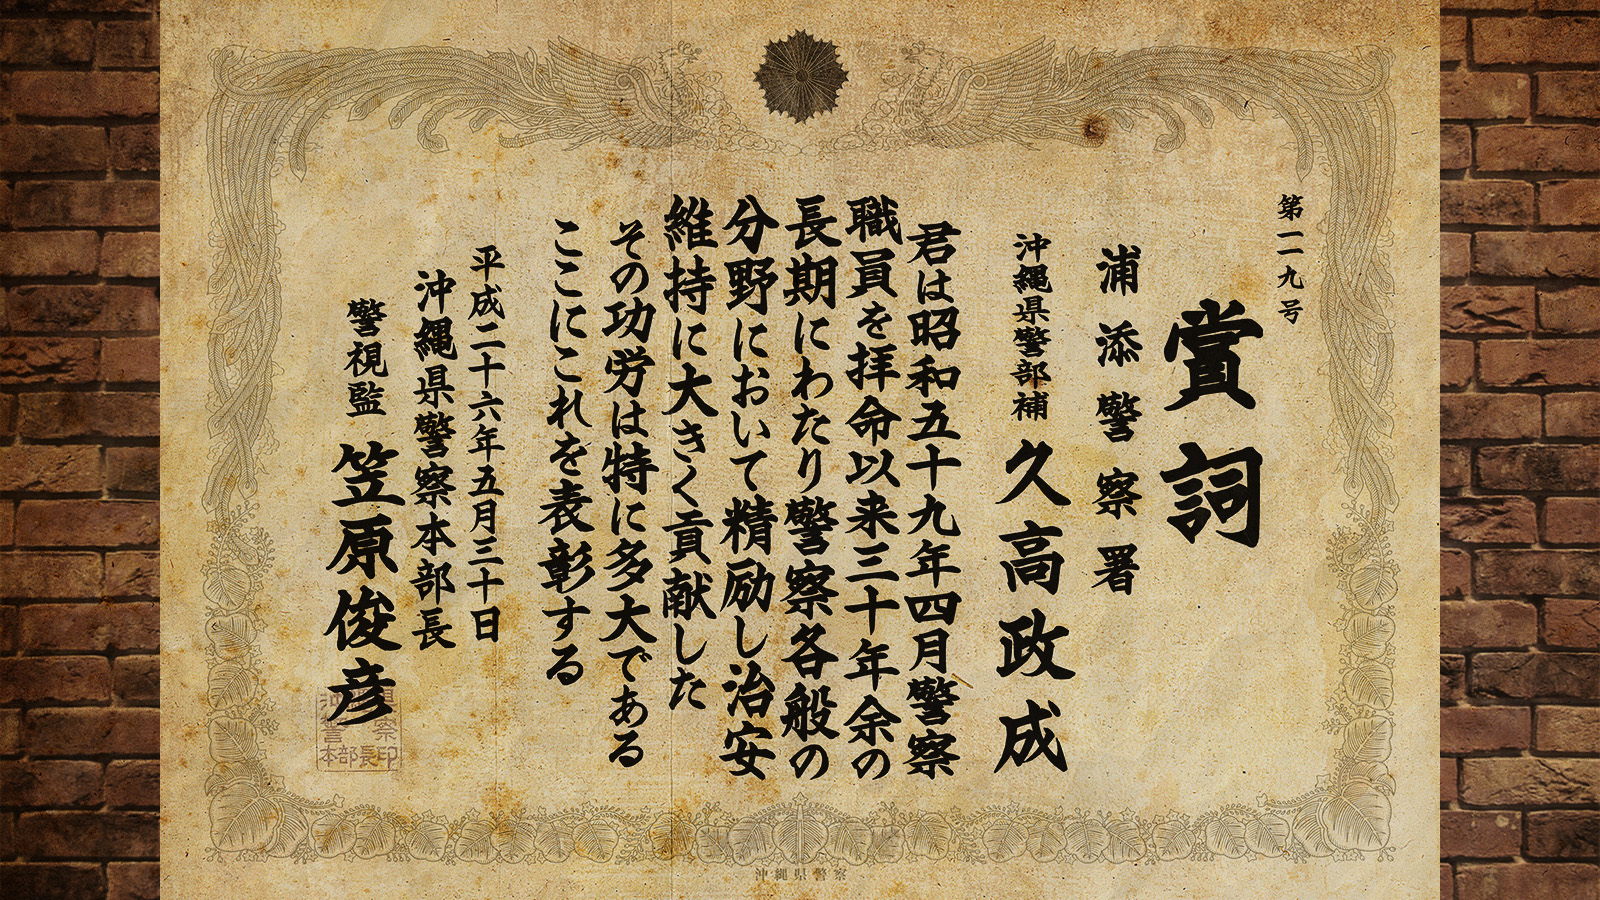 第一一九号
賞詞
浦添警察署
沖縄県警部補 久高政成
君は昭和五十九年四月警察
職員を拝命以来三十年余の
長期にわたり警察各般の
分野において精励し治安
維持に大きく貢献した
その功労は特に多大である
ここにこれを表彰する
平成二十六年五月三十日
沖縄県警察本部長
警視監 笠原俊彦
沖縄県警察